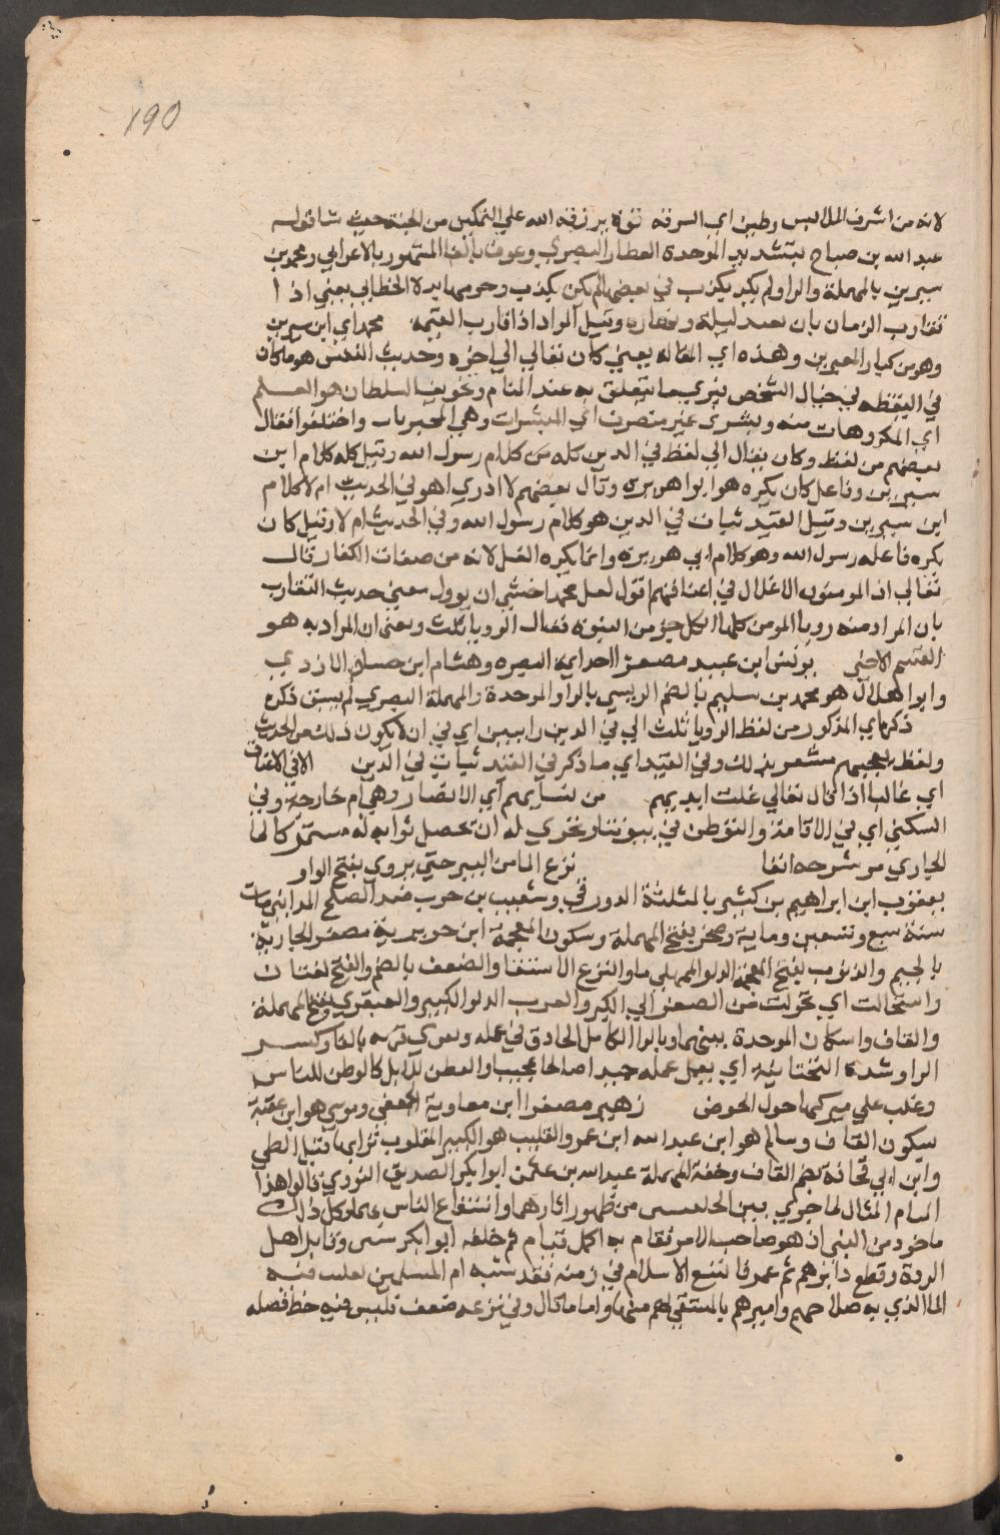 190
لانه من اشرف الملابس وطين اي السرقه قوة يرزقه الله علي التمكين من الجنة حيث شا قوله
عبد الله بن صباح بتشديد الموحدة العطار البصري وعوف بالفا المشهور بالاعرابي ومحمد بن
سيرين بالمهملة والرا ولم يكد يكذب في بعضها لم يكن يكذب وحرمها بدلا الخطابي يعني اذا
تقارب الزمان بان يعتدل ليله ونهاره وقيل المراد اذا قارب القيمه محمد اي ابن سيرين
وهو من كبار المعبرين وهذه اي المقالة يعني كان تقالي الي اخره وحديث النفس هو ما كان
في اليقظه في خيال الشخص فيري ما يتعلق به عند المنام وتخويف السلطان هو الحلم
اي المكروهات منه وبشري غير منصرف اي المبشرات وهي المحبوبات واختلفوا فقال
بعضهم من لفظ وكان يقال الي لفظ في الدين كله من كلام رسول الله وقيل كله كلام ابن
سيرين وفاعل كان يكره هو ابو هريره وقال بعضهم لا ادري اهو في الحديث ام لا كلام
ابن سيرين وقيل القيد ثبات في الدين هو كلام رسول الله وفي الحديث ام لا وقيل كان
يكره فاعله رسول الله وهو كلام ابي هريرة وانما يكره الغل لانه من صفات الكفار قال
تعالي اذ المومنون الاغلال في اعناقهم اقول لعل محمدا خشي ان يوول معني حديث التقارب
بان المراد منه رويا المومن كلها اذ الكل جزء من النبوة فقال الرويا ثلث ومعني ان المراد به هو
القسم الاخير يونس ابن عبيد مصغرا احد ايمة البصره وهشام ابن حسان الازدي
وابو الهلال هو محمد بن سليم بالضم الرسبي بالرا والموحدة والمهملة البصري لم يسبق ذكره
ذكره اي المذكور من لفظ الرويا ثلث الي في الدين وابين اي في ان لا يكون ذلك من الحديث
ولفظ يعجبهم مشعر بذلك وفي القيد اي ما ذكر في القيد ثبات في الدين الا في الاعناق
اي غالبا اذ قال تعالي غلت ايديهم من نسايهم اي الانصار وهي ام خارجة وفي
السكني اي في الاقامة والتوطن في بيوتنا ويجري له ان تحصل ثوابه له مستمر كالما
الجاري مر شرحه انفا نزع الما من البير حتي يروي بفتح الواو
يعقوب ابن ابراهيم بن كثير بالمثلثة الدورقي وشعيب بن حرب ضد الصلح المدايني مات
سنة سبع وتسعين وماية وصخر بفتح المهملة وسكون المعجمة ابن جويرية مصغر الجارية
بالجيم والذنوب بفتح المعجمة الدلو الممتلي ماء والنزع الاستقا والضعف بالضم والفتح لغتان
واستحالت اي تحولت من الصغر الي الكبر والغرب الدلو الكبير والعبقري بفتح المهملة
والقاف واسكان الموحدة بينهما وبالرا الكامل الحاذق في عمله ويفري فريه بالفا وكسر
الرا وشدة التحتانية اي يعمل عمله جيدا صالحا عجيبا والعطن للابل كالوطن للناس
وغلب علي مبركها حول الحوض زهير مصغرا ابن معاوية الجعفي وموسي هو ابن عقبة
بسكون القاف وسالم هو ابن عبد الله ابن عمر والقليب هو البير المقلوب ترابها قبل الطي
وابن ابي قحافة بضم القاف وخفة المهملة عبد الله بن عثمن ابوا بكر الصديق النووي قالوا هذا
المنام المثال لما جري بين الخليفتين من ظهور اثارهما وانتفاع الناس بهما وكل ذلك
ماخوذ من النبي اذ هو صاحب الامر فقام به اكمل قيام ثم خلفه ابو بكر سنتين وقاتل اهل
الردة وقطع دابرهم ثم عمر فاتسع الاسلام في زمنه فقد شبه ام المسلمين بقليب فيه
الما الذي به صلاحهم واميرهم بالمستقي لهم منها واما ما قال وفي نزعه ضعف فليس فيه حط فضله